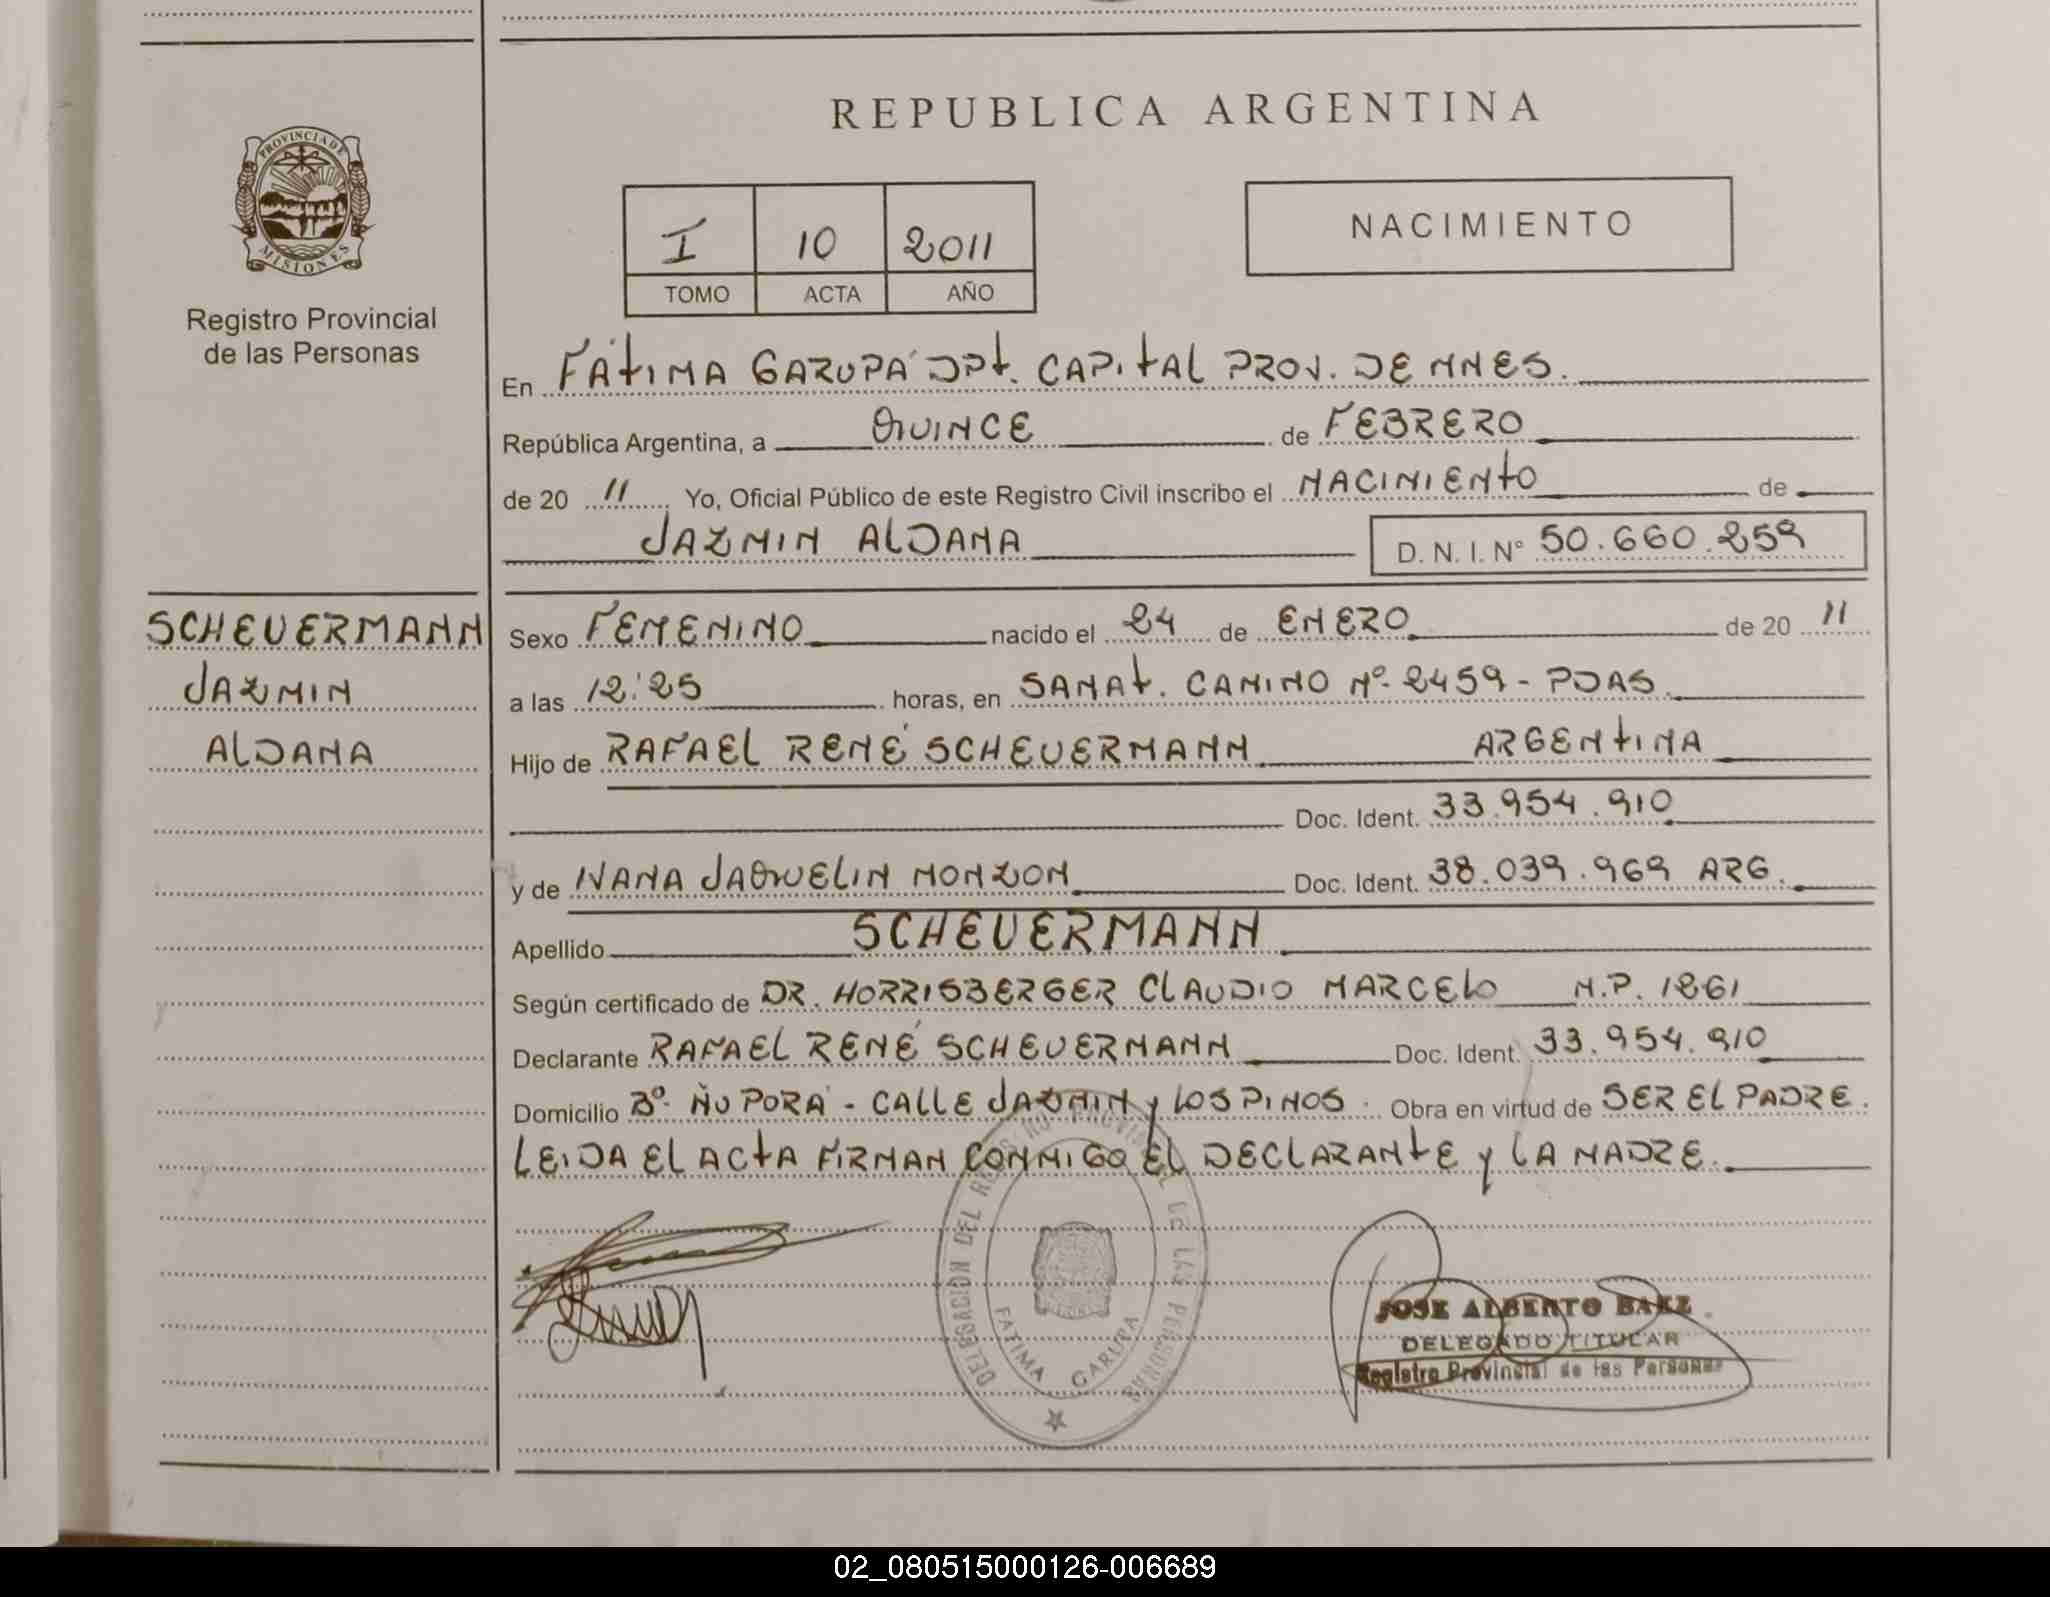 PROVINCIA DE
MISIONES
Registro Provincial
de las Personas
SCHEUERMANN
JAZMIN
ALDANA
REPUBLICA ARGENTINA
I 10 2011
TOMO ACTA AÑO
NACIMIENTO
En FÁTIMA GARUPÁ DPt. CAPITAL PROV. DE MNES.
República Argentina, a QUINCE de FEBRERO
de 20 11 Yo, Oficial Público de este Registro Civil inscribo el NACIMIENTO de
JAZMIN ALDANA D. N. I. N° 50.660.259
Sexo FEMENINO nacido el 24 de ENERO de 20 11
a las 12:25 horas, en SANAT. CAMINO Nº 2459 - PDAS.
Hijo de RAFAEL RENÉ SCHEUERMANN ARGENTINA
Doc. Ident. 33.954.910
y de IVANA JAQUELIN MONZON Doc. Ident. 38.039.969 ARG.
Apellido SCHEUERMANN
Según certificado de DR. HORRISBERGER CLAUDIO MARCELO M.P. 1861
Declarante RAFAEL RENÉ SCHEUERMANN Doc. Ident. 33.954.910
Domicilio Bº ÑU PORÁ - CALLE JAZMIN y LOS PINOS. Obra en virtud de SER EL PADRE.
LEIDA EL ACTA FIRMAN CONMIGO EL DECLARANTE y LA MADRE.
DELEGACION DEL REGISTRO PROVINCIAL DE LAS PERSONAS
FATIMA GARUPA
JOSE ALBERTO BAEZ
DELEGADO TITULAR
Registro Provincial de las Personas
02_080515000126-006689